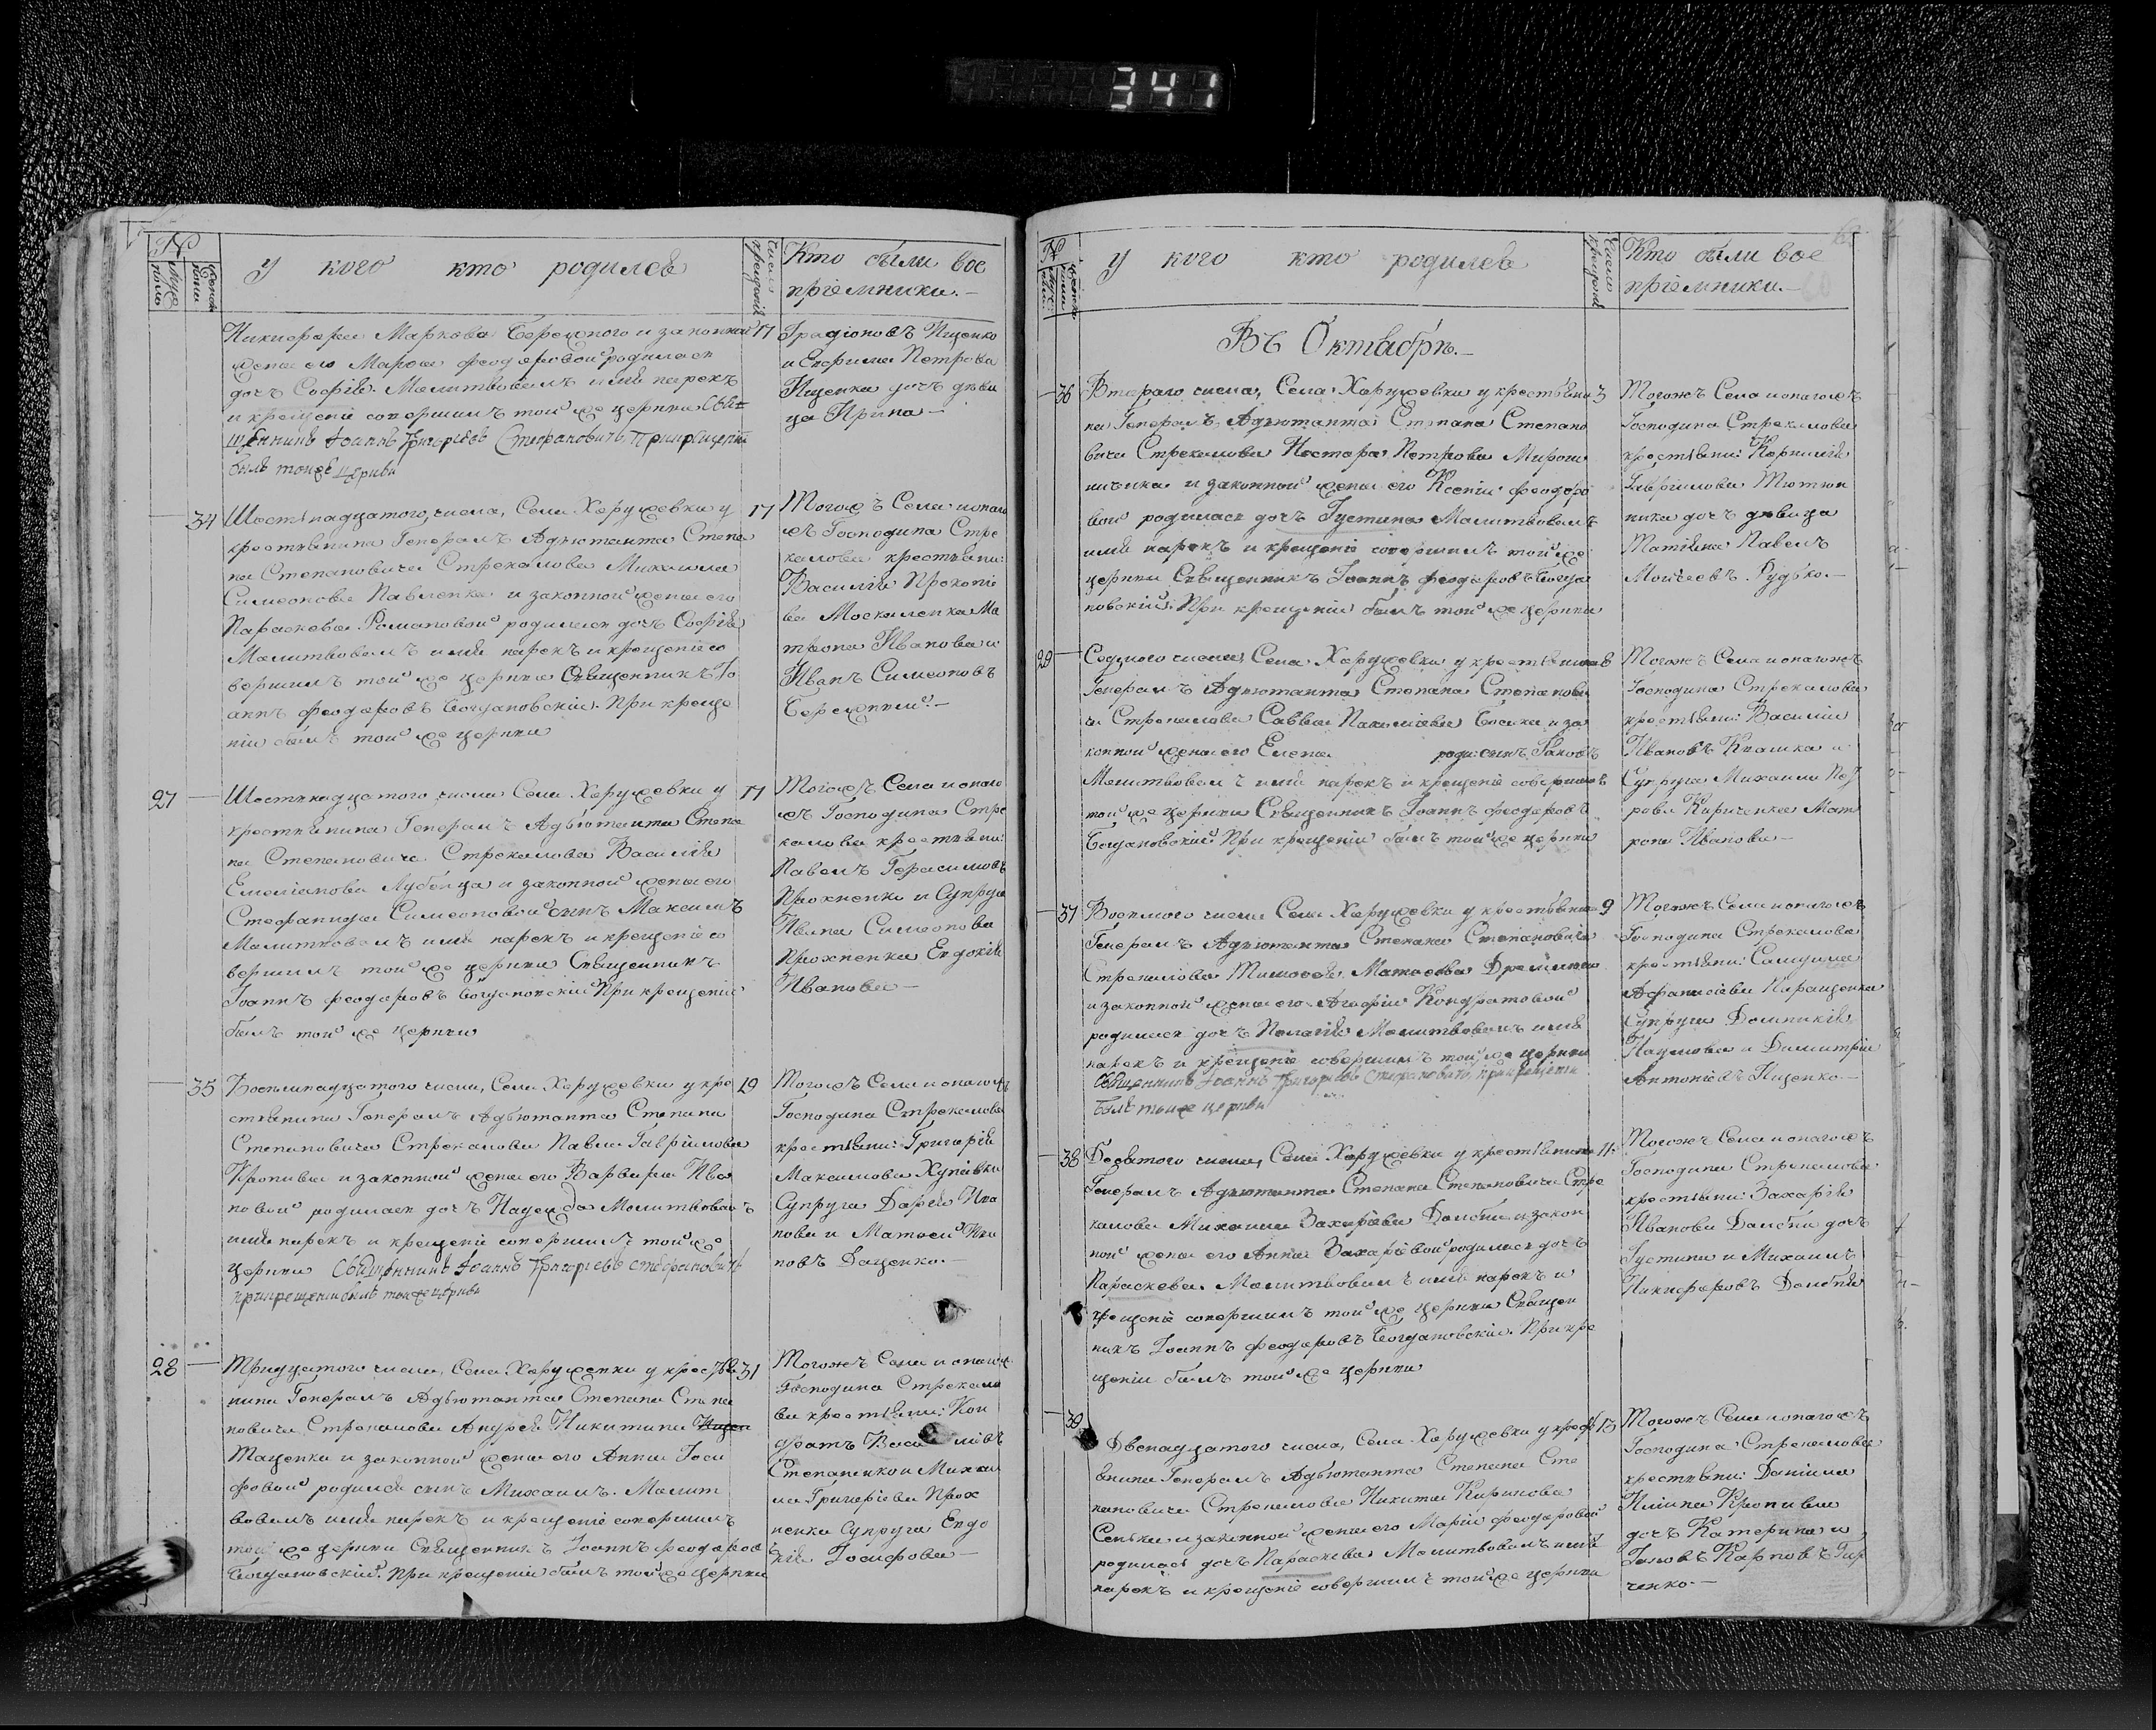 341
№
Муж: пола
Женск: пола
У кого кто родился
Число крещеній
Кто были вос
пріемники.—
Никифора Маркова Бережного и законной 17
жены его Марѳы Феодоровой родилась
дочь Софія. Молитвовалъ имя нарекъ
и крещеніе совершилъ той же церкви Свя
щенникъ Іоаннъ Григорьевъ Стефановичъ При крещеніи
былъ тойже церкви
Иродіоновъ Ищенко
и Евфима Петрова
Ищенка дочь дѣви
ца Ирина —
34 Шестнадцатого, числа, Села Харужевки у 17
крестьянина Генералъ Адъютанта Степа
на Степановича Стрекалова Михаила
Симеонова Павленка и законной жены его
Параскевы Романовой родилась дочь Софія
Молитвовалъ имя нарекъ и крещеніе со
вершилъ той же церкви Священникъ Іо
аннъ Феодоровъ Богдановскій. При креще
ніи былъ той же церкви
Тогожъ Села и оного
жъ Господина Стре
калова крестьяни:
Василій Прокопіе
ва Москаленка Ма
трона Иванова и
Иванъ Симеоновъ
Бережный —
27 Шестнадцатого числа Села Харужевки у 17
крестьянина Генералъ Адъютанта Степа
на Степановича Стрекалова Василія
Емеліанова Лубенца и законной жены его
Стефаниды Симеоновой сынъ Максимъ
Молитвовалъ имя нарекъ и крещеніе со
вершилъ той же церкви Священникъ
Іоаннъ Феодоровъ Богдановскій При крещеніи
былъ той же церкви
Тогожъ Села и оного
жъ Господина Стре
калова крестьяни:
Павелъ Герасимовъ
Прохненко и Супруга
Ивана Симеонова
Прохненка Евдокія
Иванова —
35 Восемнадцатого числа, Села Харужевки у кре 19
стьянина Генералъ Адъютанта Степана
Степановича Стрекалова Павла Гавріилова
Кропивы и законной жены его Варвары Ива
новой родилась дочь Надежда Молитвовалъ
имя нарекъ и крещеніе совершилъ той же
церкви Священникъ Іоаннъ Григорьевъ Стефановичъ
при крещеніи былъ тойже церкви
Тогожъ Села и оногожъ
Господина Стрекалова
крестьяни: Григорія
Максимова Хупавки
Супруга Дарія Ива
нова и Матвей Ива
новъ Даценко. —
28 Тридцатого числа, Села Харужевки у крестья 31
нина Генералъ Адъютанта Степана Степа
новича Стрекалова Андрея Никитина
Таценка и законной жены его Анны Іоси
фовой родился сынъ Михаилъ. Молит
вовалъ имя нарекъ и крещеніе совершилъ
той же церкви Священникъ Іоаннъ Феодоров
Богдановскій. При крещеніи былъ той же церкви
Тогожъ Села и оногож
Господина Стрекало
ва крестьяни: Кон
дратъ Васи ліевъ
Степаненко и Михаи
ла Григоріева Прох
ненка Супруга Евдо
кія Іосифова —
№
У кого кто родился
Число крещеній
Кто были вос
пріемники. —
Въ Октябрѣ. —
36 Втораго числа, Села Харужевки у крестьяни 3
на Генералъ Адъютанта Степана Степано
вича Стрекалова Нестора Петрова Мирош
ничка и законной жены его Ксеніи Феодоро
вой родилась дочь Іустина Молитвовалъ
имя нарекъ и крещеніе совершилъ той же
церкви Священникъ Іоаннъ Феодоровъ Богда
новскій. При крещеніи былъ той же церкви
Тогожъ Села и оногожъ
Господина Стрекалова
крестьяни: Корнилія
Гавріилова Тютюн
ника дочь дѣвица
Татіяна Павелъ
Моисеевъ Рудько. —
29 Седмого числа, Села Харужевки у крестьянина 8
Генералъ Адъютанта Степана Степанови
ча Стрекалова Саввы Пахоміева Босика и за
конной жены его Елены роди: сынъ Іаковъ
Молитвовалъ имя нарекъ и крещеніе совершилъ
той же церкви Священникъ Іоаннъ Феодоровъ
Богдановскій При крещеніи былъ той же церкви
Тогожъ Села и оногожъ
Господина Стрекалова
крестьяни: Василій
Ивановъ Квашка и
Супруга Михаила Пет
рова Кириченка Мат
рона Иванова —
37 Восьмого числа Села Харужевки у крестьянина 9
Генералъ Адъютанта Степана Степановича
Стрекалова Тимоѳея Матвеева
и законной жены его Агафіи Кондратовой
родилась дочь Пелагія Молитвовалъ имя
нарекъ и крещеніе совершилъ той же церкви
Священникъ Іоаннъ Григорьевъ Стефановичъ, при крещеніи
былъ тойже церкви
Тогожъ Села и оногожъ
Господина Стрекалова
крестьяни: Самуила
Афанасіева Паращенка
Супруга Домникія
Наумова и Димитрій
Антоніевъ Ищенко —
38 Девятого числа, Села Харужевки у крестьянина 11
Генералъ Адъютанта Степана Степановича Стре
калова Михаила Захаріева Долоби и закон
ной жены его Анны Захаріевой родилась дочь
Параскева. Молитвовалъ имя нарекъ и
крещеніе совершилъ той же церкви Священ
никъ Іоаннъ Феодоровъ Богдановскій. При кре
щеніи былъ той же церкви
Тогожъ Села и оногожъ
Господина Стрекалова
крестьяни: Захарія
Иванова Долоби дочь
Іустина и Михаилъ
Никифоровъ Долобія
39 Двенадцатого числа, Села Харужевки у кресть 13
янина Генералъ Адъютанта Степана Сте
пановича Стрекалова Никиты Кирикова
Сенька и законной жены его Маріи Феодоровой
родилась дочь Параскева Молитвовалъ имя
нарекъ и крещеніе совершилъ той же церкви
Тогожъ Села и оногожъ
Господина Стрекалова
крестьяни: Даніила
Кропивы
дочь Катерина и
Іаковъ Карповъ
ченко —